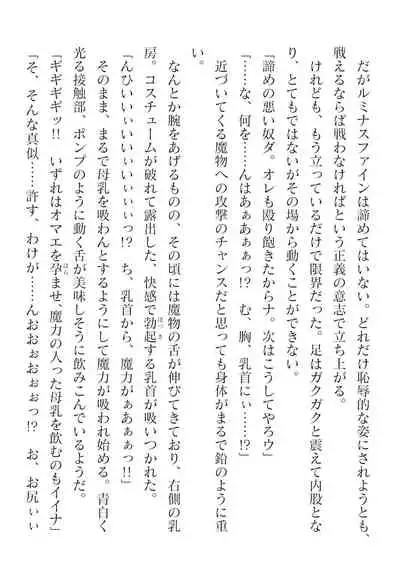 だがルミナスファインは諦めてはいない。どれだけ恥辱的な姿にされようとも、
戦えるならば戦わなければという正義の意志で立ち上がる。
けれども、もう立っているだけで限界だった。足はガクガクと震えて内股とな
り、とてもではないがその場から動くことができない。
「諦めの悪い奴ダ。オレも殴り飽きたからナ。次はこうしてやろウ」
「……な、何を……んはあぁあぁぁっ!?　む、胸、乳首にぃ……!?」
近づいてくる魔物への攻撃のチャンスだと思っても身体がまるで鉛のように重
い。
なんとか腕をあげるものの、その頃には魔物の舌が伸びてきており、右側の乳
房。コスチュームが破れて露出した、快感で勃起する乳首が吸いつかれた。
「んひいぃぃいぃいぃぃいぃぃっ!?　ち、乳首から、魔力がぁあぁぁっ!!」
そのまま、まるで母乳を吸わんとするようにして魔力が吸われ始める。青白く
光る接触部、ポンプのように動く舌が美味しそうに飲みこんでいるようだ。
「ギギギギッ!!　いずれはオマエを孕ませ、魔力の入った母乳を飲むのもイイナ」
「そ、そんな真似……許す、わけが……んおおぉおぉぉっ!?　お、お尻ぃぃ